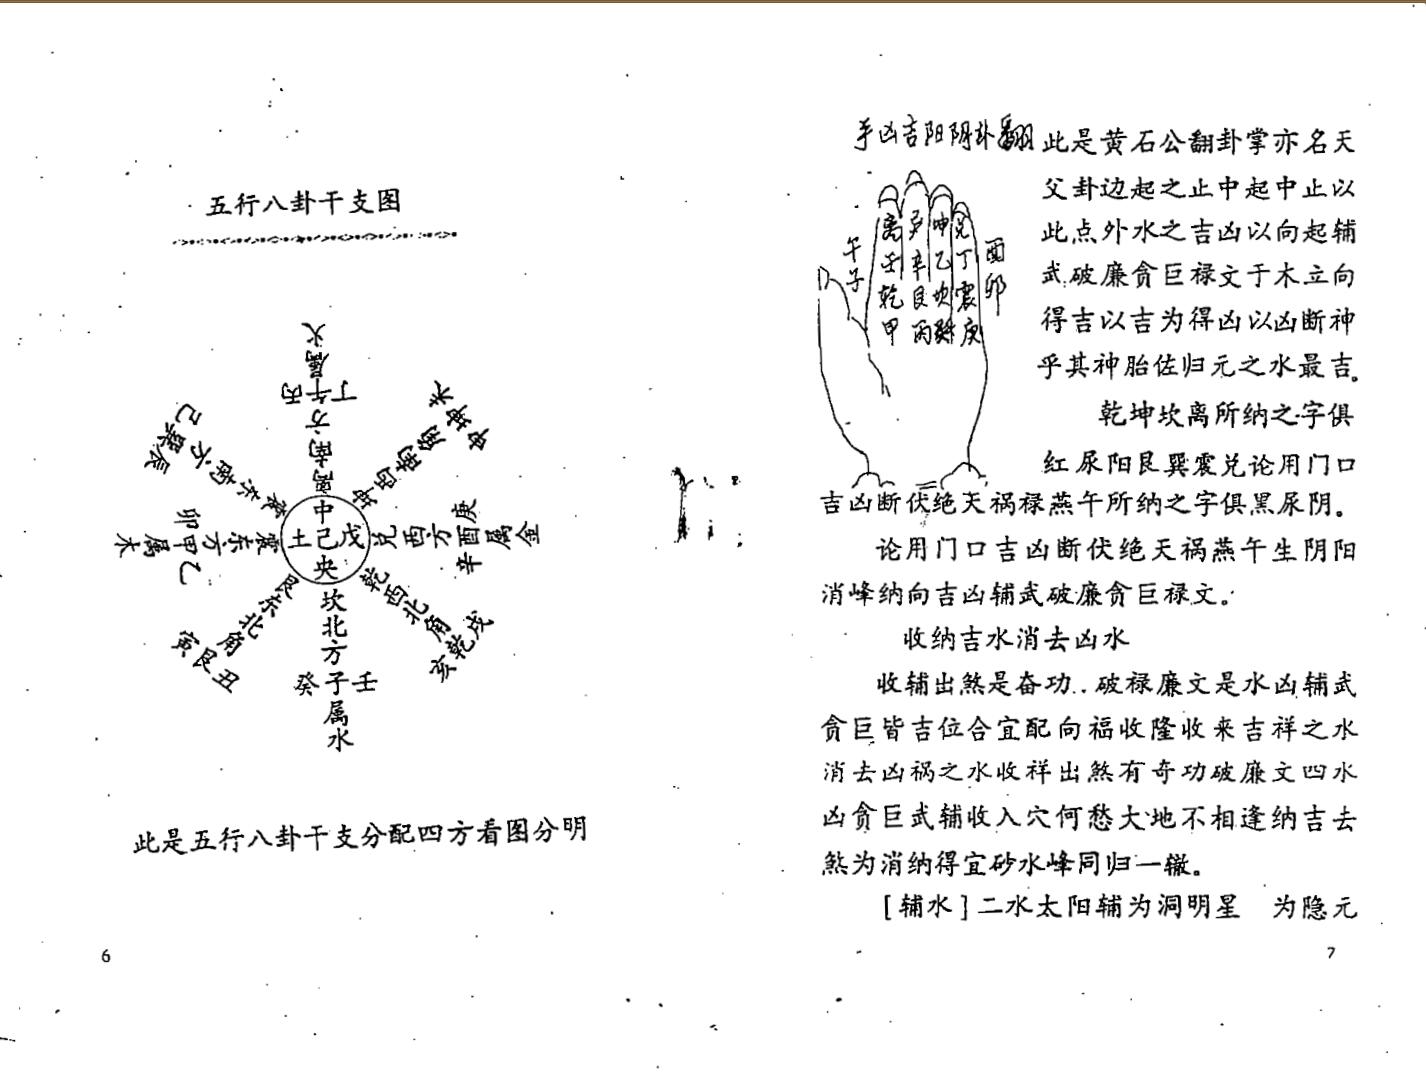 五行八卦干支图
离南方
丁午丙
属火
坤西南角
未坤申
兑西方酉属金
庚
辛
乾西北角
戌乾亥
坎北方
癸子壬
属水
艮东北角
寅艮丑
震东方甲属木
卯
乙
东南方
辰巽巳
中
土己戊
央
此是五行八卦干支分配四方看图分明
6
手凶吉阳阴卦翻
午子
离壬乾甲
辛艮丙
坤乙坎
兑丁震庚
酉卯
此是黄石公翻卦掌亦名天
父卦边起之止中起中止以
此点外水之吉凶以向起辅
武破廉贪巨禄文于木立向
得吉以吉为得凶以凶断神
乎其神胎佐归元之水最吉。
乾坤坎离所纳之字俱
红尿阳艮巽震兑论用门口
吉凶断伏绝天祸禄燕午所纳之字俱黑尿阴。
论用门口吉凶断伏绝天祸燕午生阴阳
消峰纳向吉凶辅武破廉贪巨禄文。
收纳吉水消去凶水
收辅出煞是奋功..破禄廉文是水凶辅武
贪巨皆吉位合宜配向福收隆收来吉祥之水
消去凶祸之水收祥出煞有奇功破廉文四水
凶贪巨武辅收入穴何愁大地不相逢纳吉去
煞为消纳得宜砂水峰同归一辙。
[辅水]二水太阳辅为洞明星　为隐元
7